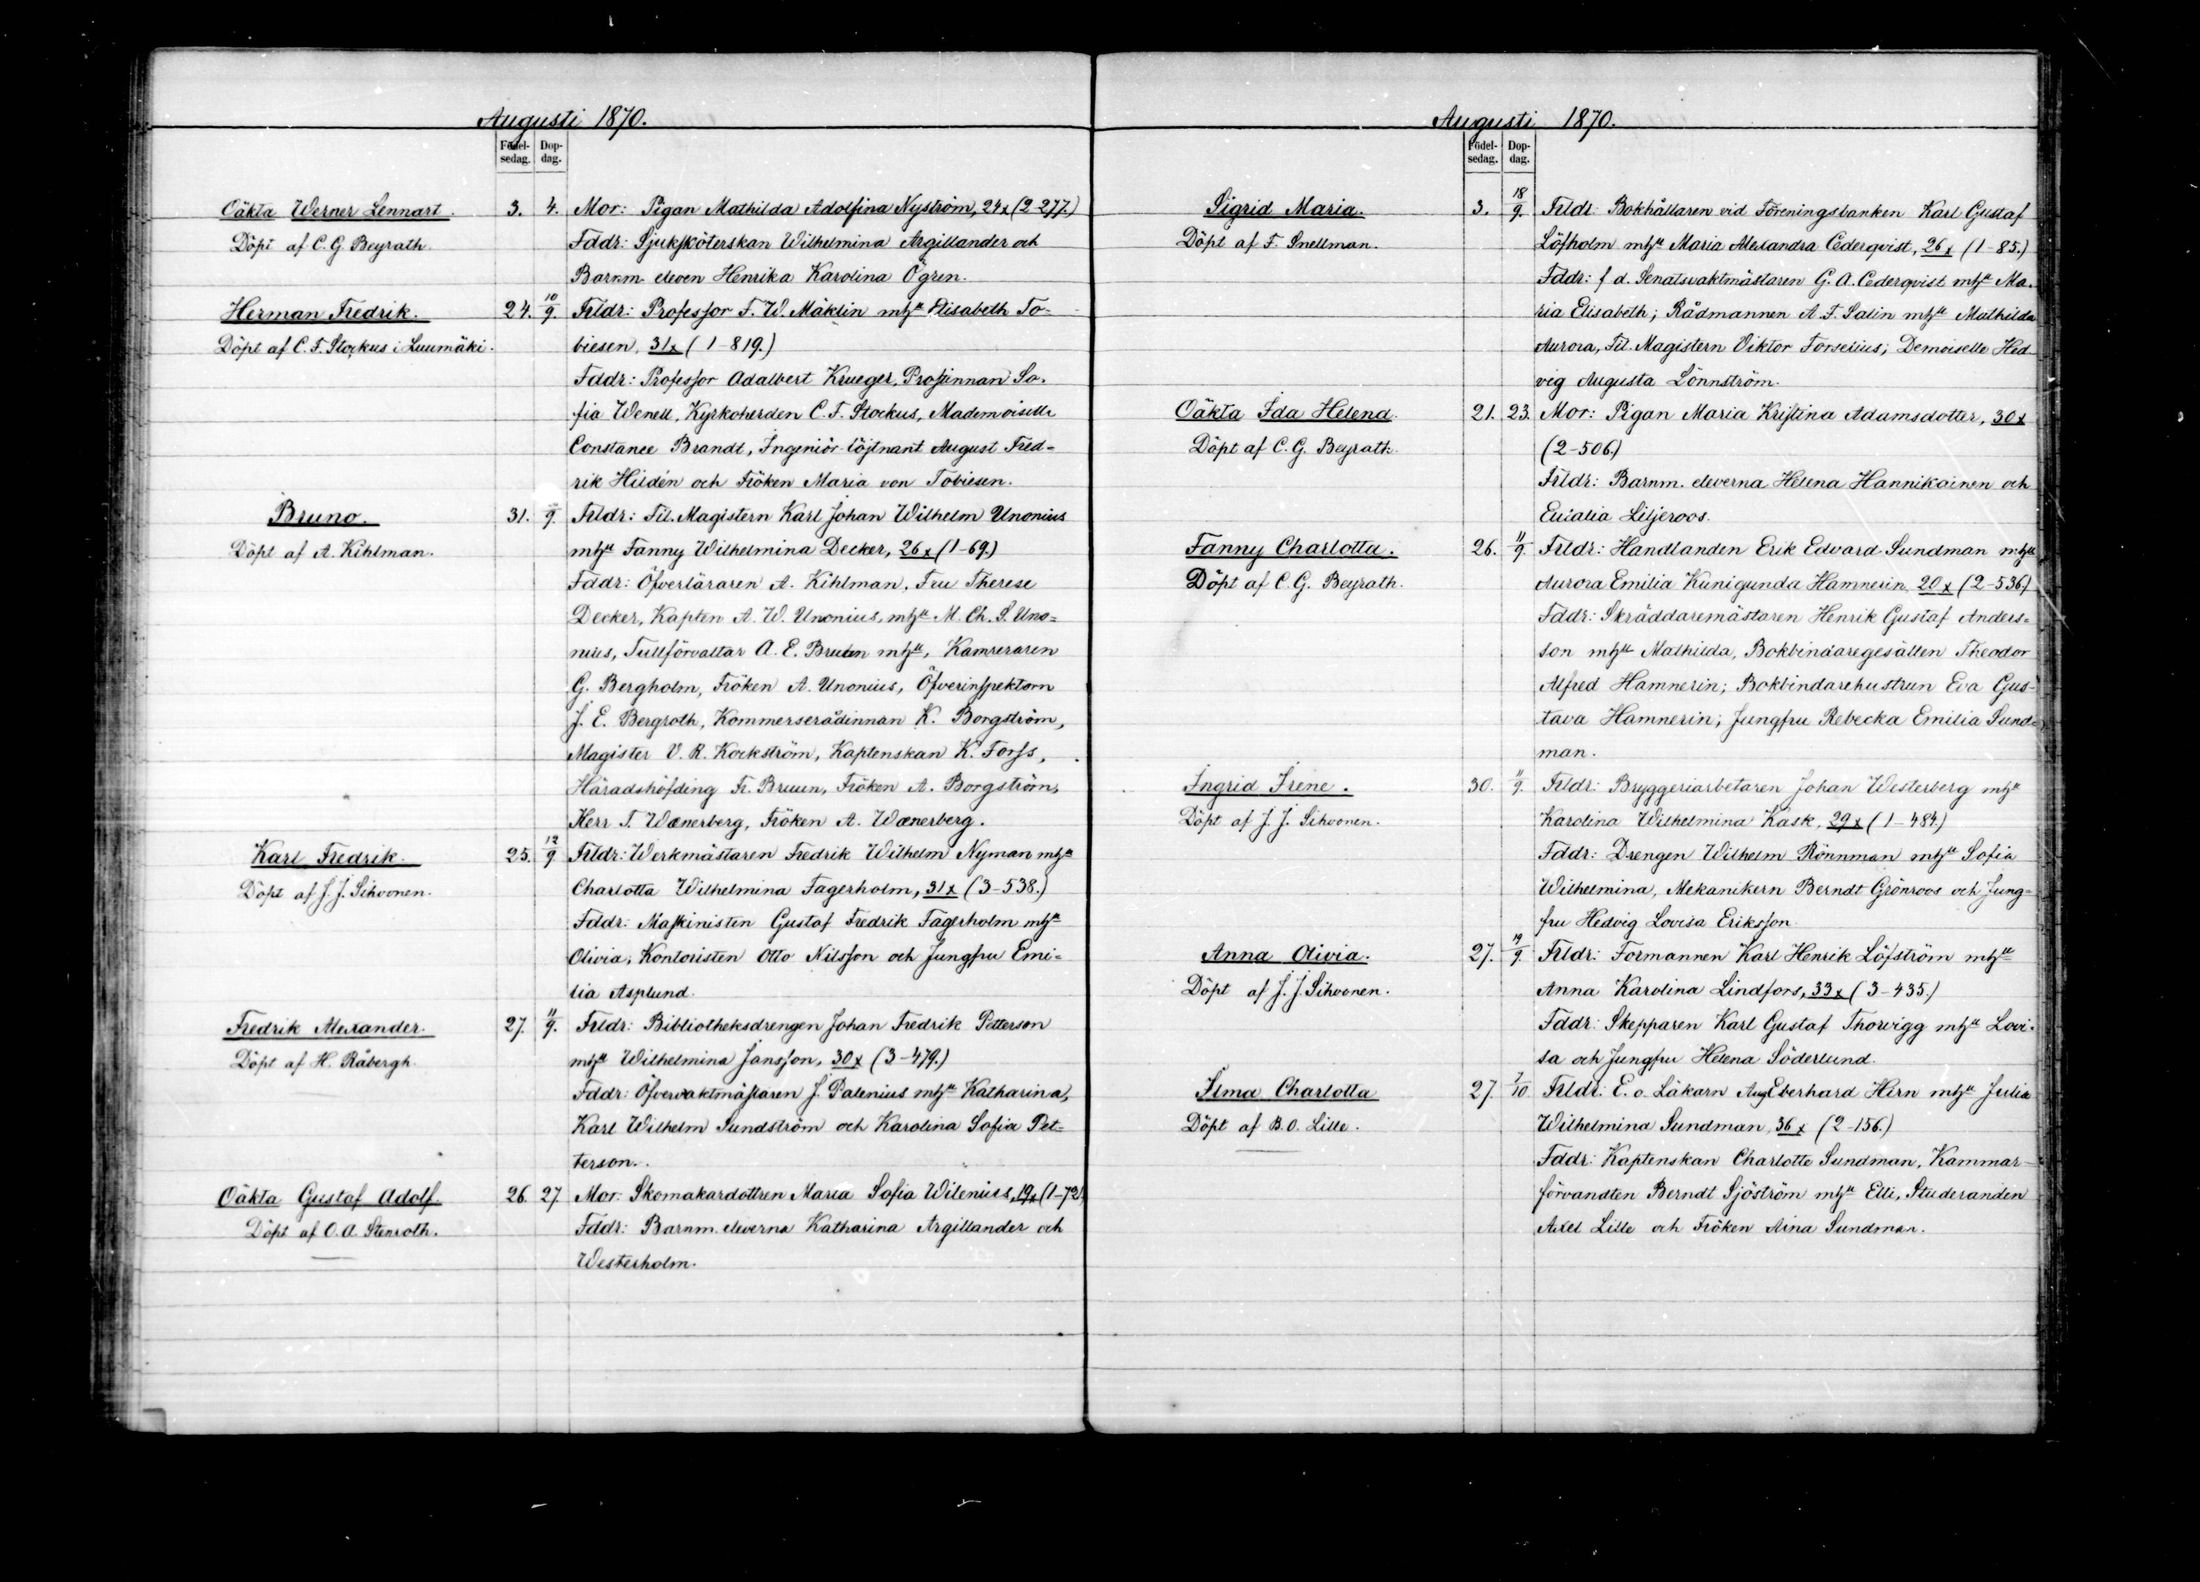 Augusti 1870.
Födel-sedag. Dop-dag.
Oäkta Werner Lennart. 3. 4. Mor: Pigan Mathilda Adolfina Nyström, 24x (2-277.)
Döpt af C. G. Beyrath. Fddr: Sjuksköterskan Wilhelmina Argillander och
Barnm. eleven Henrika Karolina Ögren.
Herman Fredrik. 24. 10/9. Frldr: Professor F. W. Mäklin mhu Elisabeth To-
Döpt af C. F. Stockus i Luumäki. biesen, 31x (1-819.)
Fddr: Professor Adalbert Krueger, Profinnan So-
fia Wenell, Kyrkoherden C. F. Stockus, Mademoiselle
Constance Brandt, Ingeniör-löjtnant August Fred-
rik Hildén och Fröken Maria von Tobiesen.
Bruno. 31. 9. Frldr: Fil. Magistern Karl Johan Wilhelm Unonius
Döpt af A. Kihlman. mhu Fanny Wilhelmina Decker, 26x (1-69.)
Fddr: Öfverläraren A. Kihlman, Fru Therese
Decker, Kapten A. W. Unonius, mhu M. Ch. S. Uno-
nius, Tullförvaltar A. E. Bruun mhu, Kamreraren
G. Bergholm, Fröken A. Unonius, Öfverinspektorn
J. E. Bergroth, Kommerserådinnan K. Borgström,
Magister V. R. Kockström, Kaptenskan K. Forss,
Häradshöfding Fr. Bruun, Fröken A. Borgström,
Herr T. Wænerberg, Fröken A. Wænerberg.
Karl Fredrik. 25. 12/9. Frldr: Werkmästaren Fredrik Wilhelm Nyman mhu
Döpt af J. J. Sihvonen. Charlotta Wilhelmina Fagerholm, 31x (3-538.)
Fddr: Maskinisten Gustaf Fredrik Fagerholm mhu
Olivia, Kontoristen Otto Nilsson och Jungfru Emi-
lia Asplund.
Fredrik Alexander. 27. 11/9. Frldr: Bibliotheksdrengen Johan Fredrik Petterson
Döpt af H. Råbergh. mhu Wilhelmina Jansson, 30x (3-479.)
Fddr: Öfvervaktmästaren J. Palenius mhu Katharina,
Karl Wilhelm Sundström och Karolina Sofia Pet-
terson.
Oäkta Gustaf Adolf. 26. 27. Mor: Skomakardottren Maria Sofia Wilenius, 19x (1-72)
Döpt af O. A. Stenroth. Fddr: Barnm. eleverna Katharina Argillander och
Westerholm.
Augusti 1870.
Födel-sedag. Dop-dag.
Sigrid Maria. 3. 18/9. Frldr: Bokhållaren vid Föreningsbanken Karl Gustaf
Döpt af F. Snellman. Löfholm mhu Maria Alexandra Cederqvist, 26x (1-85.)
Fddr: f d. Senatsvaktmästaren G. A. Cederqvist mhu Ma-
ria Elisabeth; Rådmannen A. F. Salin mhu Mathilda
Aurora, Fil. Magistern Viktor Forselius; Demoiselle Hed-
vig Augusta Lönnström.
Oäkta Ida Helena. 21. 23. Mor: Pigan Maria Kristina Adamsdotter, 30x
Döpt af C. G. Beyrath. (2-506.)
Frldr: Barnm. eleverna Helena Hannikainen och
Eulalia Liljeroos.
Fanny Charlotta. 26. 11/9. Frldr: Handlanden Erik Edvard Sundman mhu
Döpt af C. G. Beyrath. Aurora Emilia Kunigunda Hamnerin, 20x (2-536.)
Fddr: Skräddaremästaren Henrik Gustaf Anders-
son mhu Mathilda, Bokbindaregesällen Theodor
Alfred Hamnerin; Bokbindarehustrun Eva Gus-
tava Hamnerin; Jungfru Rebecka Emilia Sund-
man.
Ingrid Irene. 30. 11/9. Frldr: Bryggeriarbetaren Johan Westerberg mhu
Döpt af J. J. Sihvonen. Karolina Wilhelmina Kask, 29x (1-484.)
Fddr: Drengen Wilhelm Rönnman mhu Sofia
Wilhelmina, Mekanikern Berndt Grönroos och Jung-
fru Hedvig Lovisa Eriksson.
Anna Olivia. 27. 19/9. Frldr: Formannen Karl Henrik Löfström mhu
Döpt af J. J. Sihvonen. Anna Karolina Lindfors, 33x (3-435.)
Fddr: Skepparen Karl Gustaf Thorvigg mhu Lovi-
sa och Jungfru Helena Söderlund.
Ilma Charlotta 27. 7/10. Frldr: E. o. Läkarn Aug Eberhard Hirn mhu Julia
Döpt af B. O. Lille. Wilhelmina Sundman, 36x (2-156.)
Fddr: Kaptenskan Charlotte Sundman, Kammar-
förvandten Berndt Sjöström mhu Elli, Studeranden
Axel Lille och Fröken Aina Sundman.